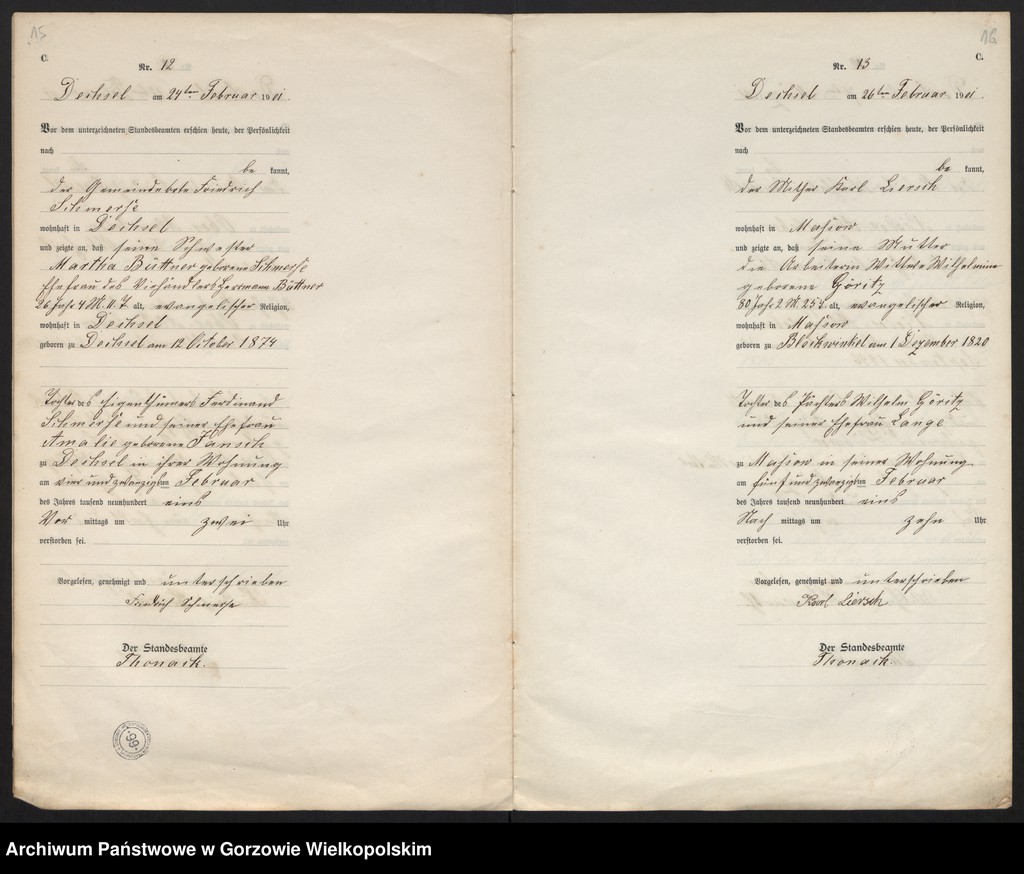 15
C.
Nr. 12
Dechsel am 24ten Februar 1901.
Vor dem unterzeichneten Standesbeamten erschien heute, der Persönlichkeit
nach
be kannt,
der Gemeindebote Friedrich
Schmerse
wohnhaft in Dechsel
und zeigte an, daß seine Schwester
Martha Büttner geborene Schmerse
Ehefrau des Viehändlers Hermann Büttner
26 Jahr 4 M. 11 T. alt, evangelischer Religion,
wohnhaft in Dechsel
geboren zu Dechsel am 12 October 1874
Tochter des Eigenthümers Ferdinand
Schmerse und seiner Ehefrau
Amalie geborene Jansch
zu Dechsel in ihrer Wohnung
am vier und zwanzigsten Februar
des Jahres tausend neunhundert eins
Vor mittags um zwei Uhr
verstorben sei.
Vorgelesen, genehmigt und unterschrieben
Friedrich Schmerse
Der Standesbeamte
Thonack.
99
16
C.
Nr. 13
Dechsel am 26ten Februar 1901.
Vor dem unterzeichneten Standesbeamten erschien heute, der Persönlichkeit
nach
be kannt,
der Mither Karl Liersch
wohnhaft in Massow
und zeigte an, daß seine Mutter
die Arbeiterin Wittwe Wilhelmine
geborene Göritz
80 Jahr 2 M. 25 T. alt, evangelischer Religion,
wohnhaft in Massow
geboren zu Blockwinkel am 1 Dezember 1820
Tochter des Pächters Wilhelm Göritz
und seiner Ehefrau Lange
zu Massow in seiner Wohnung
am fünf und zwanzigsten Februar
des Jahres tausend neunhundert eins
Nach mittags um zehn Uhr
verstorben sei.
Vorgelesen, genehmigt und unterschrieben
Karl Liersch
Der Standesbeamte
Thonack.
Archiwum Państwowe w Gorzowie Wielkopolskim